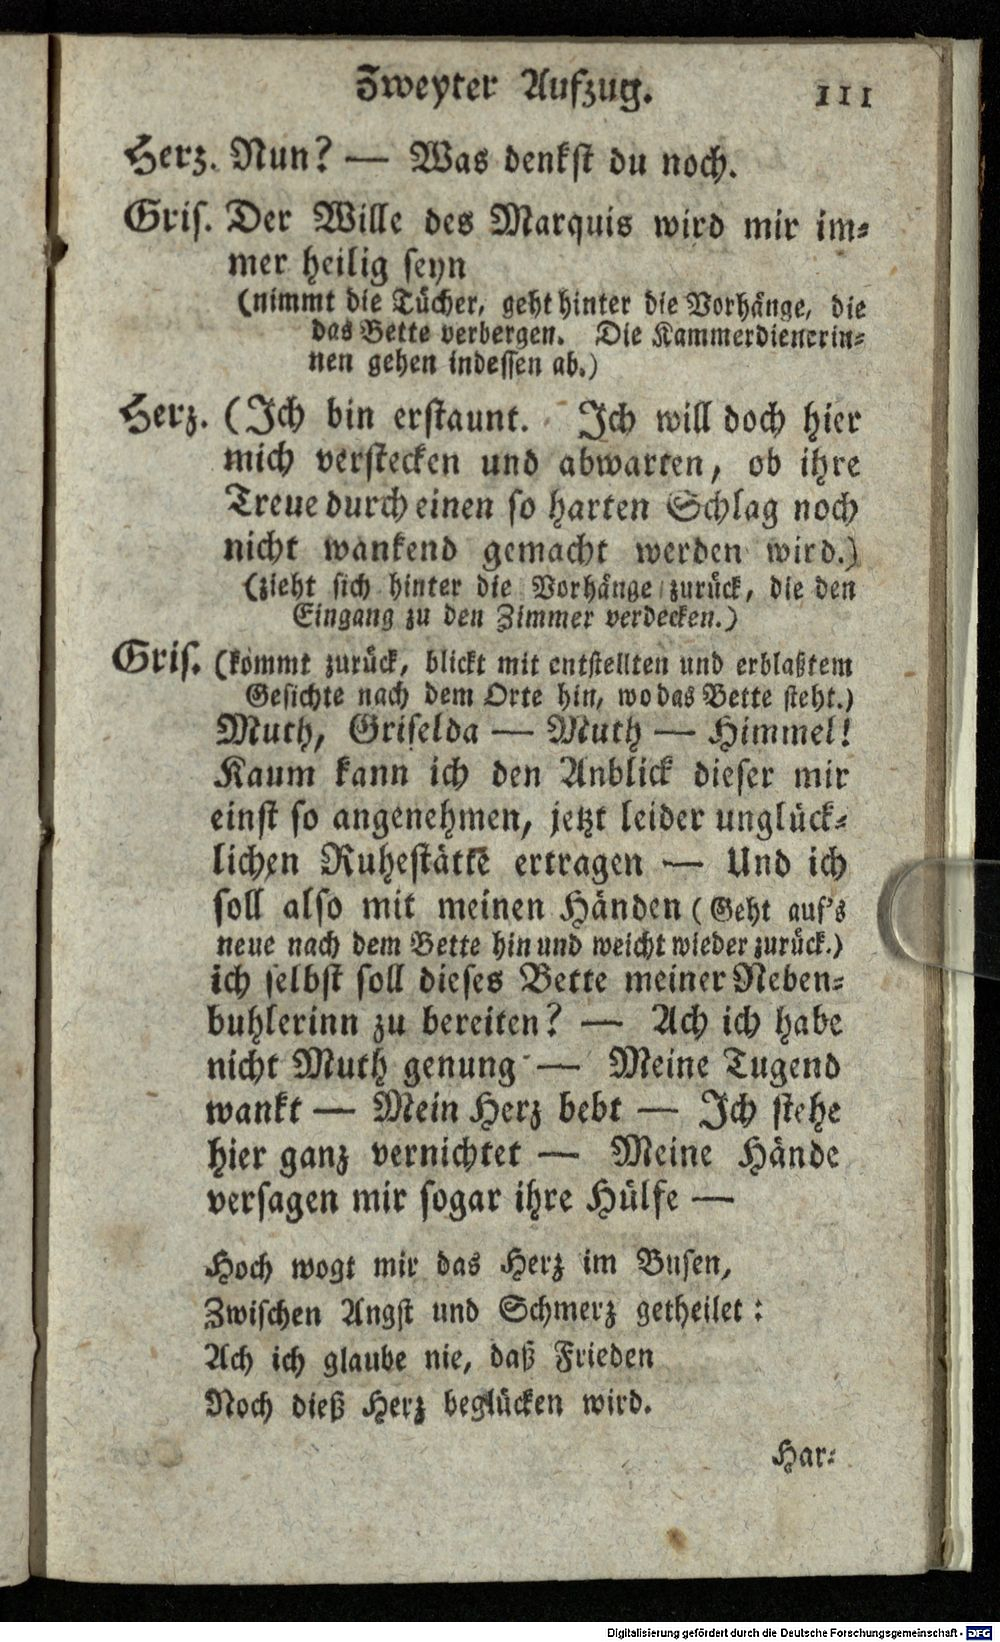 Zweyter Aufzug. 111
Herz. Nun? — Was denkst du noch.
Gris. Der Wille des Marquis wird mir im-
mer heilig seyn
(nimmt die Tücher, geht hinter die Vorhänge, die
das Bette verbergen. Die Kammerdienerin-
nen gehen indessen ab.)
Herz. (Ich bin erstaunt. Ich will doch hier
mich verstecken und abwarten, ob ihre
Treue durch einen so harten Schlag noch
nicht wankend gemacht werden wird.)
(zieht sich hinter die Vorhänge zurück, die den
Eingang zu den Zimmer verdecken.)
Gris. (kommt zurück, blickt mit entstellten und erblaßtem
Gesichte nach dem Orte hin, wo das Bette steht.)
Muth, Griselda — Muth — Himmel!
Kaum kann ich den Anblick dieser mir
einst so angenehmen, jetzt leider unglück-
lichen Ruhestätte ertragen — Und ich
soll also mit meinen Händen (Geht auf's
neue nach dem Bette hin und weicht wieder zurück.)
ich selbst soll dieses Bette meiner Neben-
buhlerinn zu bereiten? — Ach ich habe
nicht Muth genung — Meine Tugend
wankt — Mein Herz bebt — Ich stehe
hier ganz vernichtet — Meine Hände
versagen mir sogar ihre Hülfe —
Hoch wogt mir das Herz im Busen,
Zwischen Angst und Schmerz getheilet:
Ach ich glaube nie, daß Frieden
Noch dieß Herz beglücken wird.
Har-
Digitalisierung gefördert durch die Deutsche Forschungsgemeinschaft - DFG